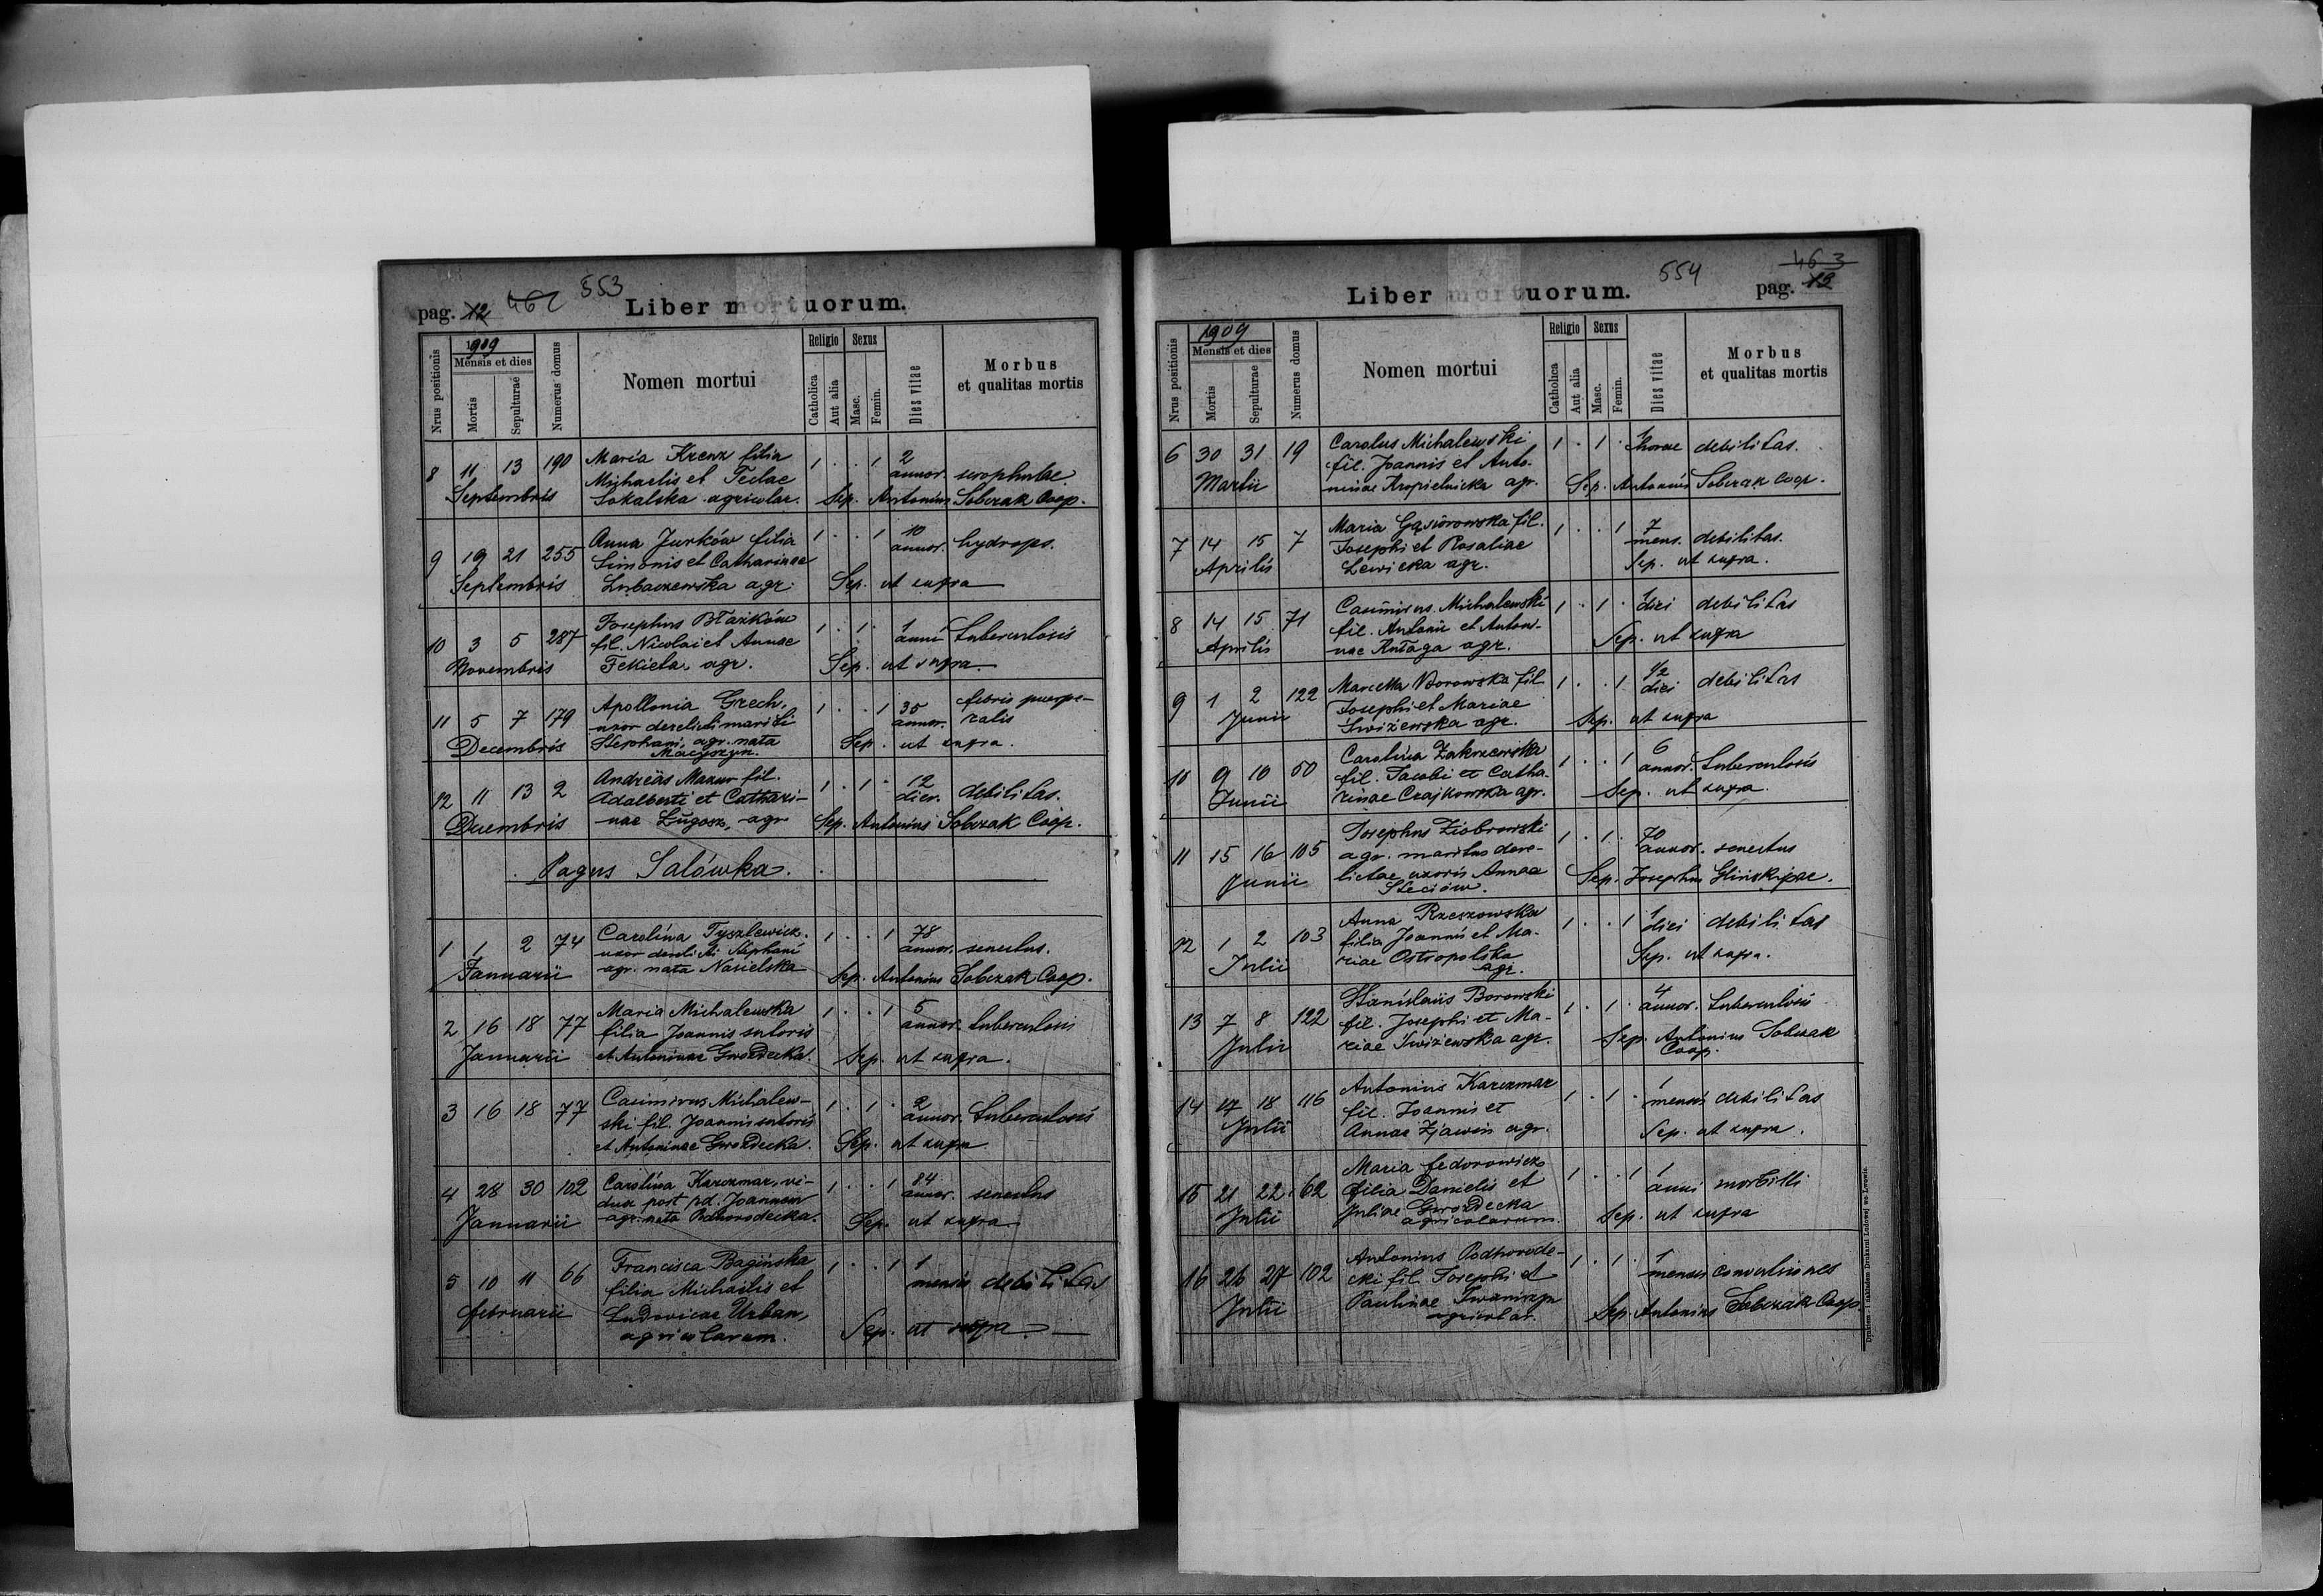 pag. 12 462 553 Liber mortuorum.
Nrus positionis
1909
Mensis et dies
Mortis
Sepulturae
Numerus domus
Nomen mortui
Religio
Catholica
Aut alia
Sexus
Masc.
Femin.
Dies vitae
Morbus
et qualitas mortis
8 11 13 190 Maria Krenz filia 1 . . 1 2
Michaelis et Teclae annor. scrophulae.
Septembris Sokalska agricolar. Sep. Antonius Sobczak Coop.
9 19 21 255 Anna Jurków filia 1 . . 1 10
Simonis et Catharinae annor. hydrops.
Septembris Lubaczewska agr. Sep. ut supra
10 3 5 287 Josephus Błażków 1 . 1 . 1
fil. Nicolai et Annae anni Tuberculosis
Novembris Fekieta agr. Sep. ut supra
11 5 7 179 Apollonia Grech, 1 . . 1 35 febris puerpe-
uxor derelicti mariti annor. ralis
Decembris Stephani, agr. nata Sep. ut supra.
Macyszyn.
12 11 13 2 Andreas Mazur fil. 1 . 1 . 12
Adalberti et Cathari- dier. debilitas.
Decembris nae Ługosz, agr Sep. Antonius Sobczak Coop.
Pagus Salówka.
1 1 2 74 Carolina Tyszkewicz. 1 . . 1 78
uxor derelicti Stephani annor. senectus.
Januarii agr. nata Nasielska Sep. Antonius Sobczak Coop.
2 16 18 77 Maria Michalewska 1 . . 1 5
filia Joannis sutoris annor. Tuberculosis
Januarii et Antoninae Gwozdecka. Sep. ut supra.
3 16 18 77 Casimirus Michalew- 1 . 1 . 2
ski fil. Joannis sutoris annor. Tuberculosis
et Antoninae Gwozdecka. Sep. ut supra
4 28 30 102 Carolina Karczmar, vi- 1 . . 1 84
dua post pd. Joannem annor. senectus
Januarii agr. nata Podhorodecka. Sep. ut supra
5 10 11 66 Francisca Bagińska 1 . . 1 1
filia Michaelis et mensis debilitas
Februarii Ludovicae Urban,
agricolarum. Sep. ut supra
Liber mortuorum. 554 463
pag. 12
Nrus positionis
1909
Mensis et dies
Mortis
Sepulturae
Numerus domus
Nomen mortui
Religio
Catholica
Aut alia
Sexus
Masc.
Femin.
Dies vitae
Morbus
et qualitas mortis
6 30 31 19 Carolus Michalewski 1 . 1 . 1 horae debilitas.
fil. Joannis et Anto-
Martii ninae Kropielnicka agr. Sep. Antonius Sobczak Coop.
7 14 15 7 Maria Gąsiorowska fil. 1 . . 1 7
Josephi et Rosaliae mens. debilitas.
Aprilis Lewicka agr. Sep. ut supra.
8 14 15 71 Casimirus Michalewski 1 . 1 . 1 diei debilitas
fil. Antonii et Antoni-
Aprilis nae Kułaga agr. Sep. ut supra
9 1 2 122 Marcella Borowska fil 1 . . 1 1/2 diei debilitas
Josephi et Mariae
Junii Iwiżewska agr. Sep. ut supra
10 9 10 50 Carolina Zakrzewska 1 . . 1 6
fil. Jacobi et Catha- annor. Tuberculosis
Junii rinae Czajkowska agr. Sep. ut supra.
11 15 16 105 Josephus Ziobrowski 1 . 1 . 70
agr. maritus dere- annor. senectus
Junii lictae uxoris Annae Sep. Josephus Glinski
Steciów.
12 1 2 103 Anna Rzeszowska 1 . . 1 1 diei debilitas
filia Joannis et Ma-
Julii riae Ostropolska Sep. ut supra.
agr.
13 7 8 122 Stanislaus Borowski 1 . 1 . 4
fil. Josephi et Ma- annor. Tuberculosis
Julii riae Iwiżewska agr. Sep. Antonius Sobczak
Coop.
14 17 18 116 Antonius Karczmar 1 . 1 . 1
fil. Joannis et mensis debilitas
Julii Annae Zjawin agr. Sep. ut supra.
15 21 22 162 Maria Fedorowicz 1 . . 1 1
filia Danielis et anni morbilli
Julii Juliae Gwozdecka Sep. ut supra
agricolarum.
16 26 27 102 Antonius Podhorode- 1 . 1 . 1
cki fil. Josephi et mensis convulsiones
Julii Paulinae Iwaniszyn Sep. Antonius Sobczak Coop
agricolar.
Drukiem i nakładem Drukarni Ludowej we Lwowie.